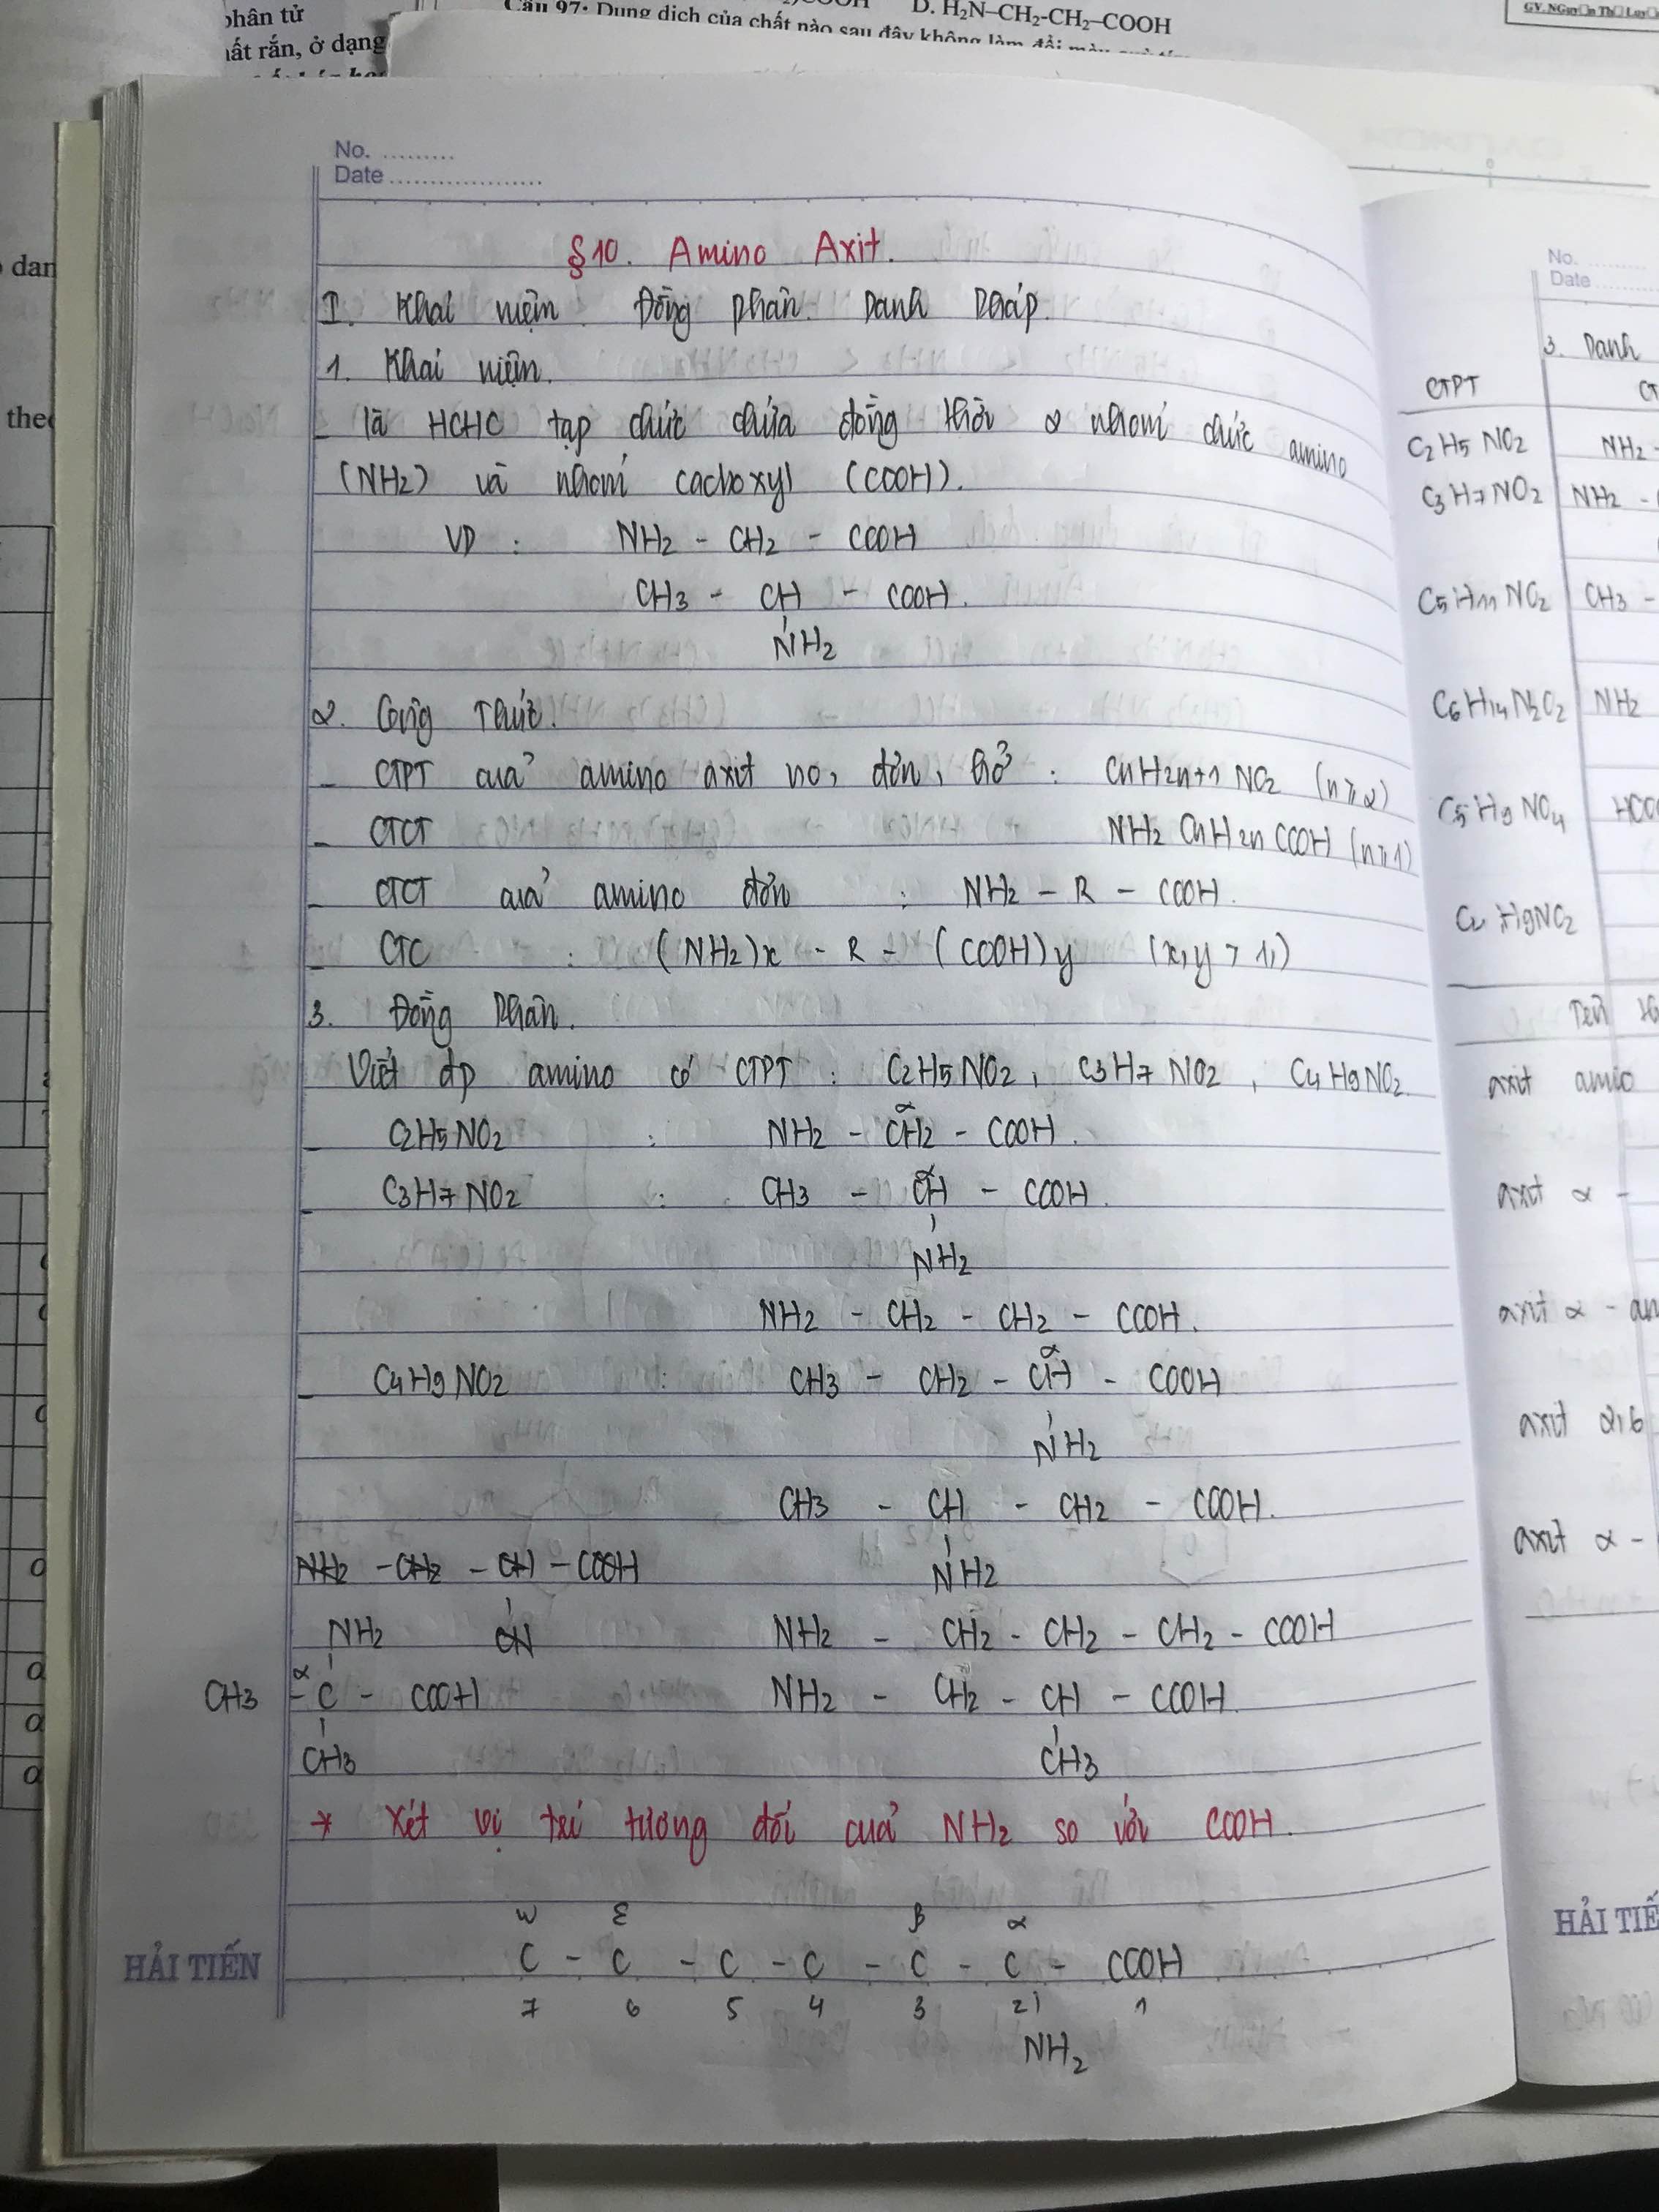 phân tử
ất rắn, ở dạng
D. H₂N–CH₂-CH₂–COOH
Câu 97: Dung dịch của chất nào sau đây không làm đổi màu
dan
No. .........
Date ...................
§10. Amino Axit.
I. Khái niệm. Đồng phân. Danh Pháp.
1. Khái niệm.
- là HCHC tạp chức chứa đồng thời 2 nhóm chức amino
(NH₂) và nhóm cacboxyl (COOH).
VD : NH₂ - CH₂ - COOH
CH₃ - CH - COOH.
NH₂
2. Công Thức.
- CTPT của amino axit no, đơn, hở : CnH2n+1 NO₂ (n ≥ 2)
- CTCT NH₂ CnH2n COOH (n ≥ 1)
- CTCT của amino đơn : NH₂ - R - COOH.
- CTC : (NH₂)x - R - (COOH)y (x,y > 1,)
3. Đồng Phân.
Viết đp amino có CTPT : C₂H₅NO₂, C₃H₇NO₂, C₄H₉NO₂.
- C₂H₅NO₂ : NH₂ - CH₂ - COOH.
α
- C₃H₇NO₂ : CH₃ - CH - COOH.
α
NH₂
NH₂ - CH₂ - CH₂ - COOH.
- C₄H₉NO₂ : CH₃ - CH₂ - CH - COOH
α
NH₂
CH₃ - CH - CH₂ - COOH.
NH₂ - CH₂ - CH - COOH NH₂
NH₂ NH₂ - CH₂ - CH₂ - CH₂ - COOH
α
CH₃ - C - COOH NH₂ - CH₂ - CH - COOH.
CH₃ CH₃
* Xét vị trí tương đối của NH₂ so với COOH.
w ε β α
C - C - C - C - C - C - COOH
7 6 5 4 3 2 1
NH₂
HẢI TIẾN
No. .........
Date
3. Danh
CTPT
C₂H₅NO₂ NH₂ -
C₃H₇NO₂ NH₂ -
C₅H₁₁NO₂ CH₃ -
C₆H₁₄N₂O₂ NH₂
C₅H₉NO₄
Tên
axit amio
axit α -
axit α - am
axit 2,6
axit α -
HẢI TIẾ